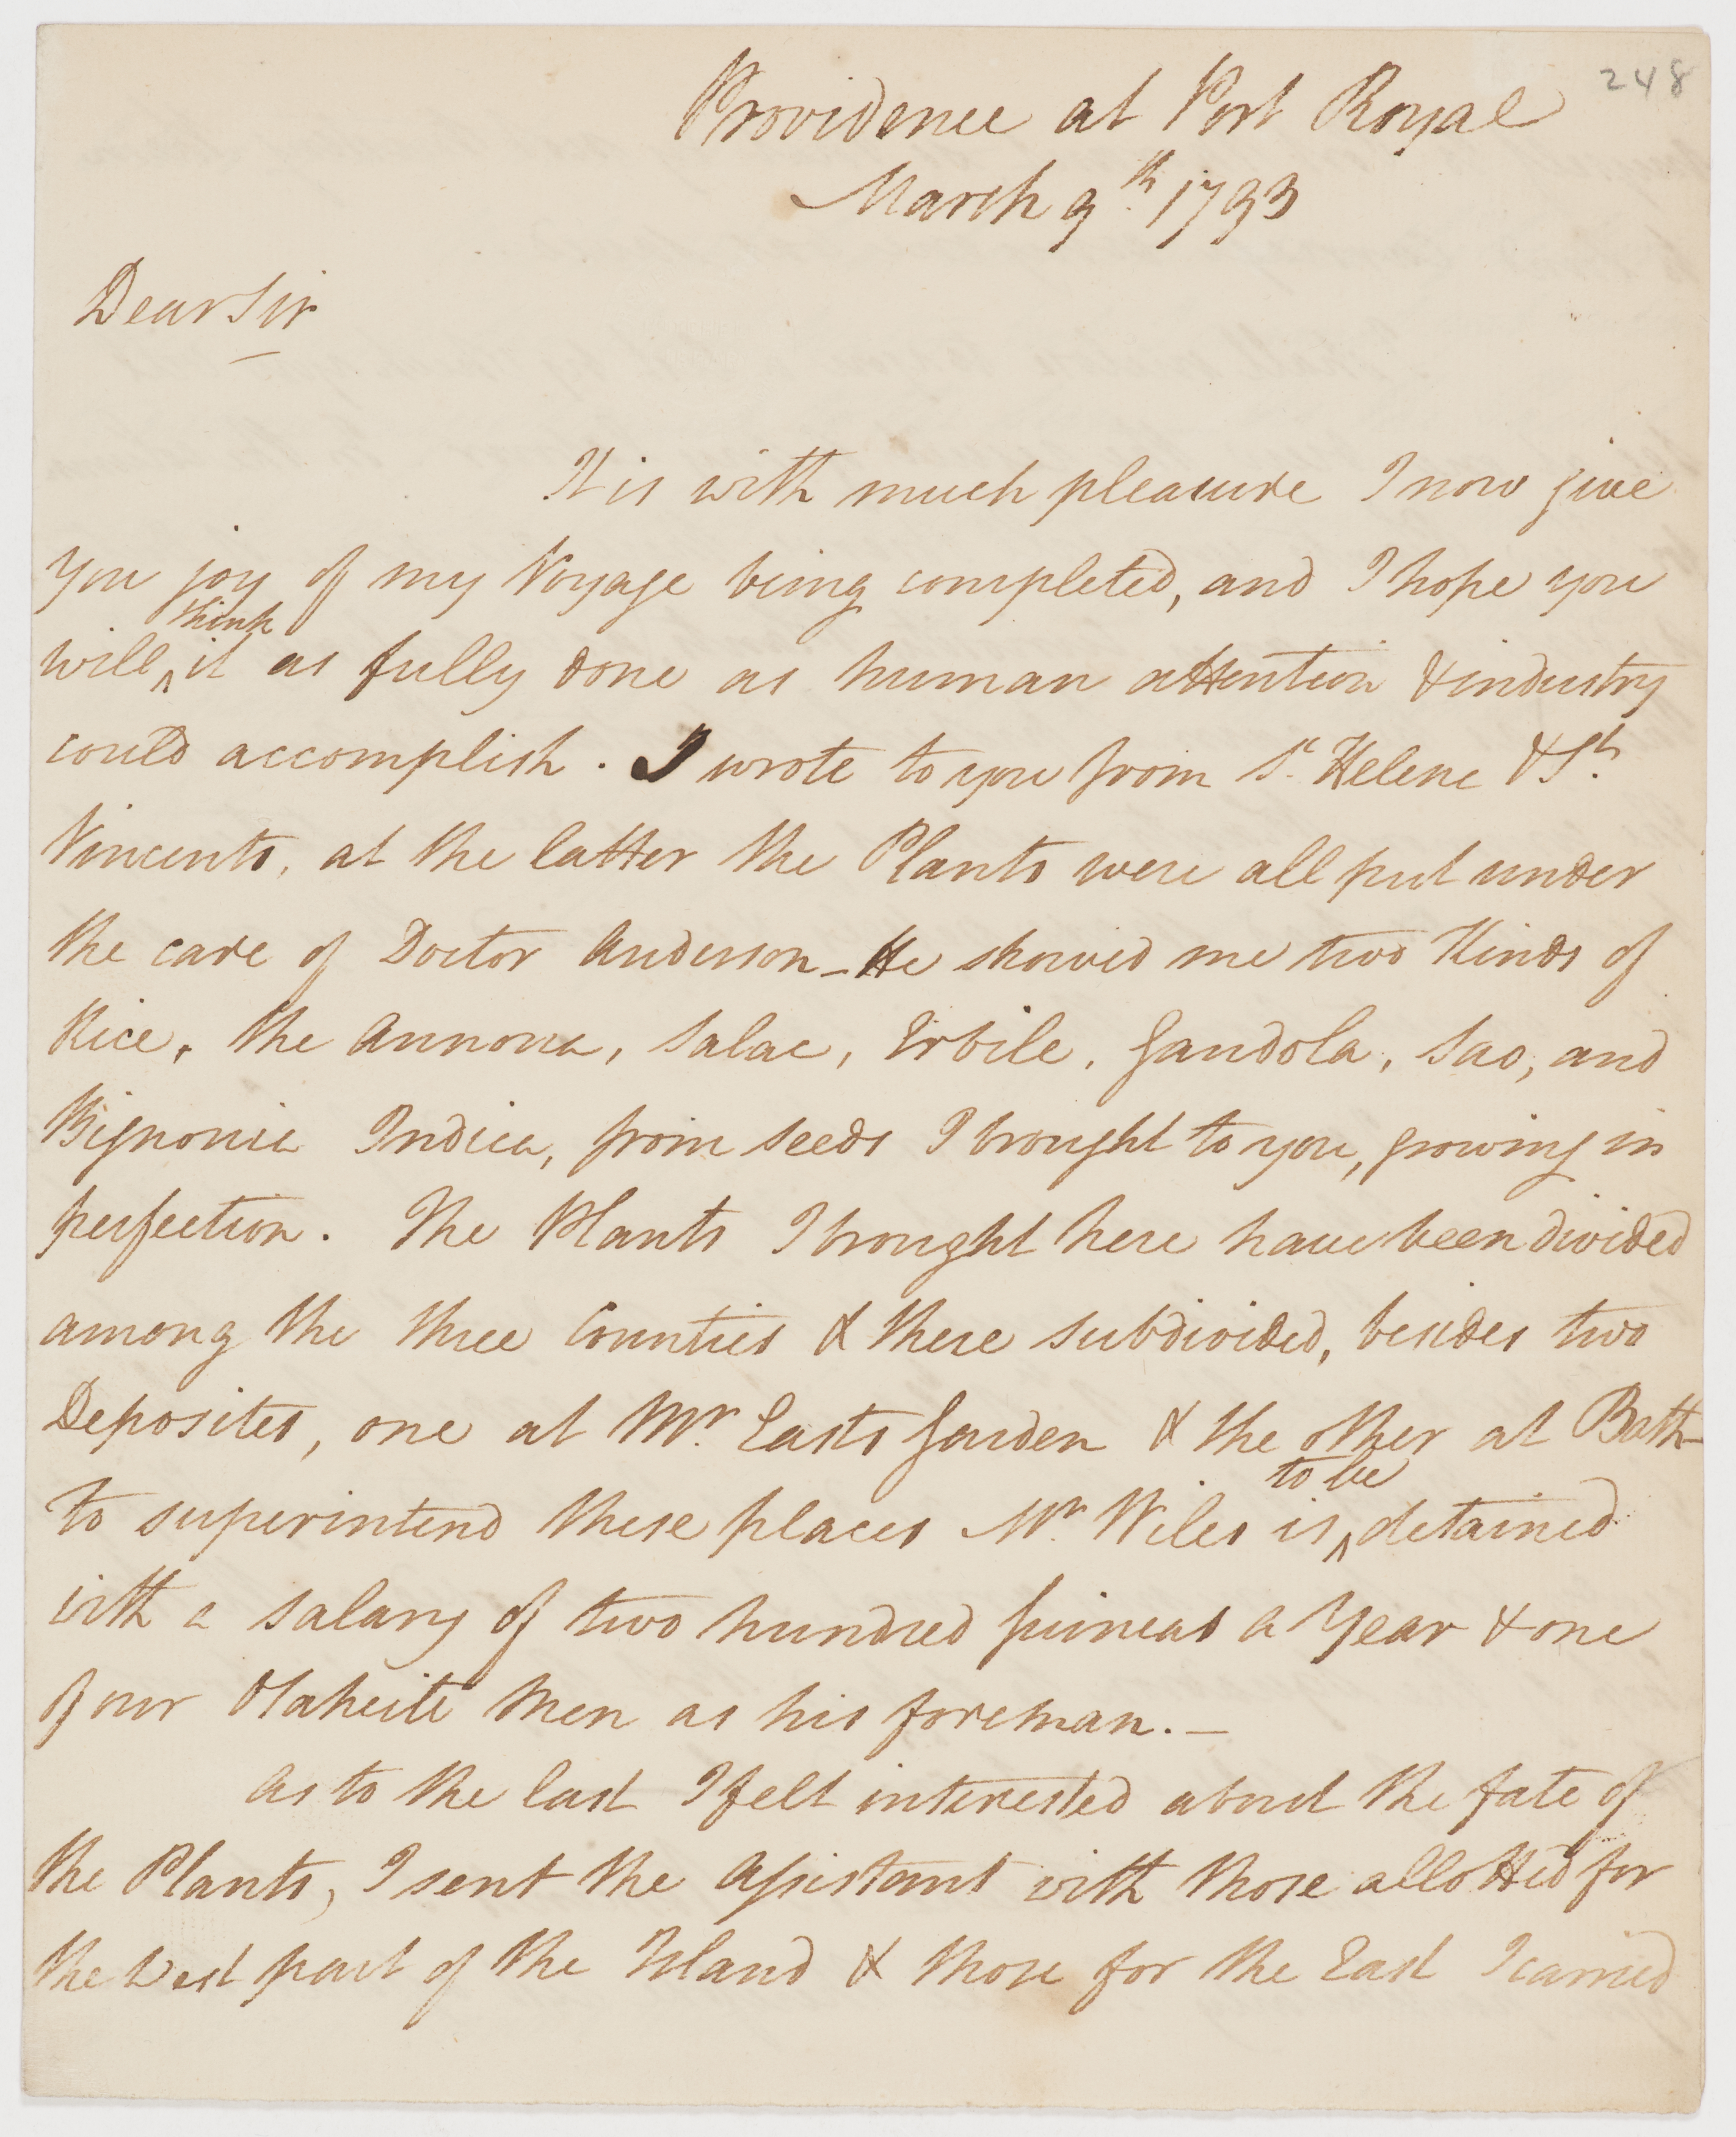 248
Providence at Port Royal
March 9th. 1793
Dear Sir
It is with much pleasure I now give
you joy of my Voyage being completed, and I hope you
think
will ^ it as fully done as human attention & industry
could accomplish. I wrote to you from St. Helena & St.
Vincents, at the latter the Plants were all put under
the care of Doctor Anderson_He showed me two Kinds of
Rice, the Annona, Salac, Erbile, Gandola, Sao, and
Bignonia Indica, from seeds I brought to you, growing in
perfection. The Plants I brought here have been divided
among the three Counties & there subdivided, besides two
Deposites, one at Mr. Easts Garden & the other at Bath_
to be
to superintend these places Mr. Wiles is ^ detained
with a salary of two hundred guineas a Year & one
of our Otaheite Men as his foreman._
As to the last I felt interested about the fate of
the Plants, I sent the Assistant with those allotted for
the West part of the Island & those for the East I carried